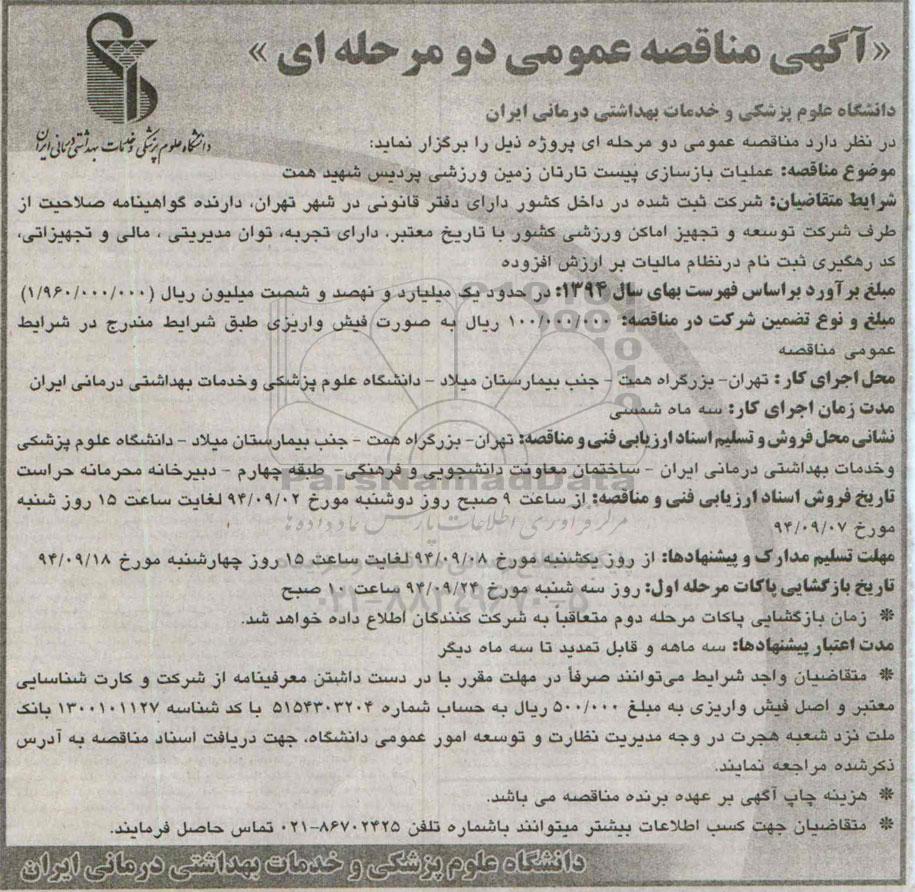 «آگهی مناقصه عمومی دو مرحله ای»
دانشگاه علوم پزشکی و خدمات بهداشتی درمانی ایران
دانشگاه علوم پزشکی و خدمات بهداشتی درمانی ایران
در نظر دارد مناقصه عمومی دو مرحله ای پروژه ذیل را برگزار نماید:
موضوع مناقصه: عملیات بازسازی پیست تارتان زمین ورزشی پردیس شهید همت
شرایط متقاضیان: شرکت ثبت شده در داخل کشور دارای دفتر قانونی در شهر تهران، دارنده گواهینامه صلاحیت از
طرف شرکت توسعه و تجهیز اماکن ورزشی کشور با تاریخ معتبر، دارای تجربه، توان مدیریتی ، مالی و تجهیزاتی،
کد رهگیری ثبت نام درنظام مالیات بر ارزش افزوده
مبلغ برآورد براساس فهرست بهای سال ۱۳۹۴: در حدود یک میلیارد و نهصد و شصت میلیون ریال (۱/۹۶۰/۰۰۰/۰۰۰)
مبلغ و نوع تضمین شرکت در مناقصه: ۱۰۰/۰۰۰/۰۰۰ ریال به صورت فیش واریزی طبق شرایط مندرج در شرایط
عمومی مناقصه
محل اجرای کار : تهران- بزرگراه همت - جنب بیمارستان میلاد - دانشگاه علوم پزشکی وخدمات بهداشتی درمانی ایران
مدت زمان اجرای کار: سه ماه شمسی
نشانی محل فروش و تسلیم اسناد ارزیابی فنی و مناقصه: تهران- بزرگراه همت - جنب بیمارستان میلاد - دانشگاه علوم پزشکی
وخدمات بهداشتی درمانی ایران - ساختمان معاونت دانشجویی و فرهنگی- طبقه چهارم - دبیرخانه محرمانه حراست
تاریخ فروش اسناد ارزیابی فنی و مناقصه: از ساعت ۹ صبح روز دوشنبه مورخ ۹۴/۰۹/۰۲ لغایت ساعت ۱۵ روز شنبه
مورخ ۹۴/۰۹/۰۷
مهلت تسلیم مدارک و پیشنهادها: از روز یکشنبه مورخ ۹۴/۰۹/۰۸ لغایت ساعت ۱۵ روز چهارشنبه مورخ ۹۴/۰۹/۱۸
تاریخ بازگشایی پاکات مرحله اول: روز سه شنبه مورخ ۹۴/۰۹/۲۴ ساعت ۱۰ صبح
* زمان بازگشایی پاکات مرحله دوم متعاقباً به شرکت کنندگان اطلاع داده خواهد شد.
مدت اعتبار پیشنهادها: سه ماهه و قابل تمدید تا سه ماه دیگر
* متقاضیان واجد شرایط می‌توانند صرفاً در مهلت مقرر با در دست داشتن معرفینامه از شرکت و کارت شناسایی
معتبر و اصل فیش واریزی به مبلغ ۵۰۰/۰۰۰ ریال به حساب شماره ۵۱۵۴۳۰۳۲۰۴ با کد شناسه ۱۳۰۰۱۰۱۱۲۷ بانک
ملت نزد شعبه هجرت در وجه مدیریت نظارت و توسعه امور عمومی دانشگاه، جهت دریافت اسناد مناقصه به آدرس
ذکرشده مراجعه نمایند.
* هزینه چاپ آگهی بر عهده برنده مناقصه می باشد.
* متقاضیان جهت کسب اطلاعات بیشتر میتوانند باشماره تلفن ۸۶۷۰۲۴۲۵-۰۲۱ تماس حاصل فرمایند.
دانشگاه علوم پزشکی و خدمات بهداشتی درمانی ایران
ParsNamadData
مرکز فرآوری اطلاعات پارس نماد داده ها